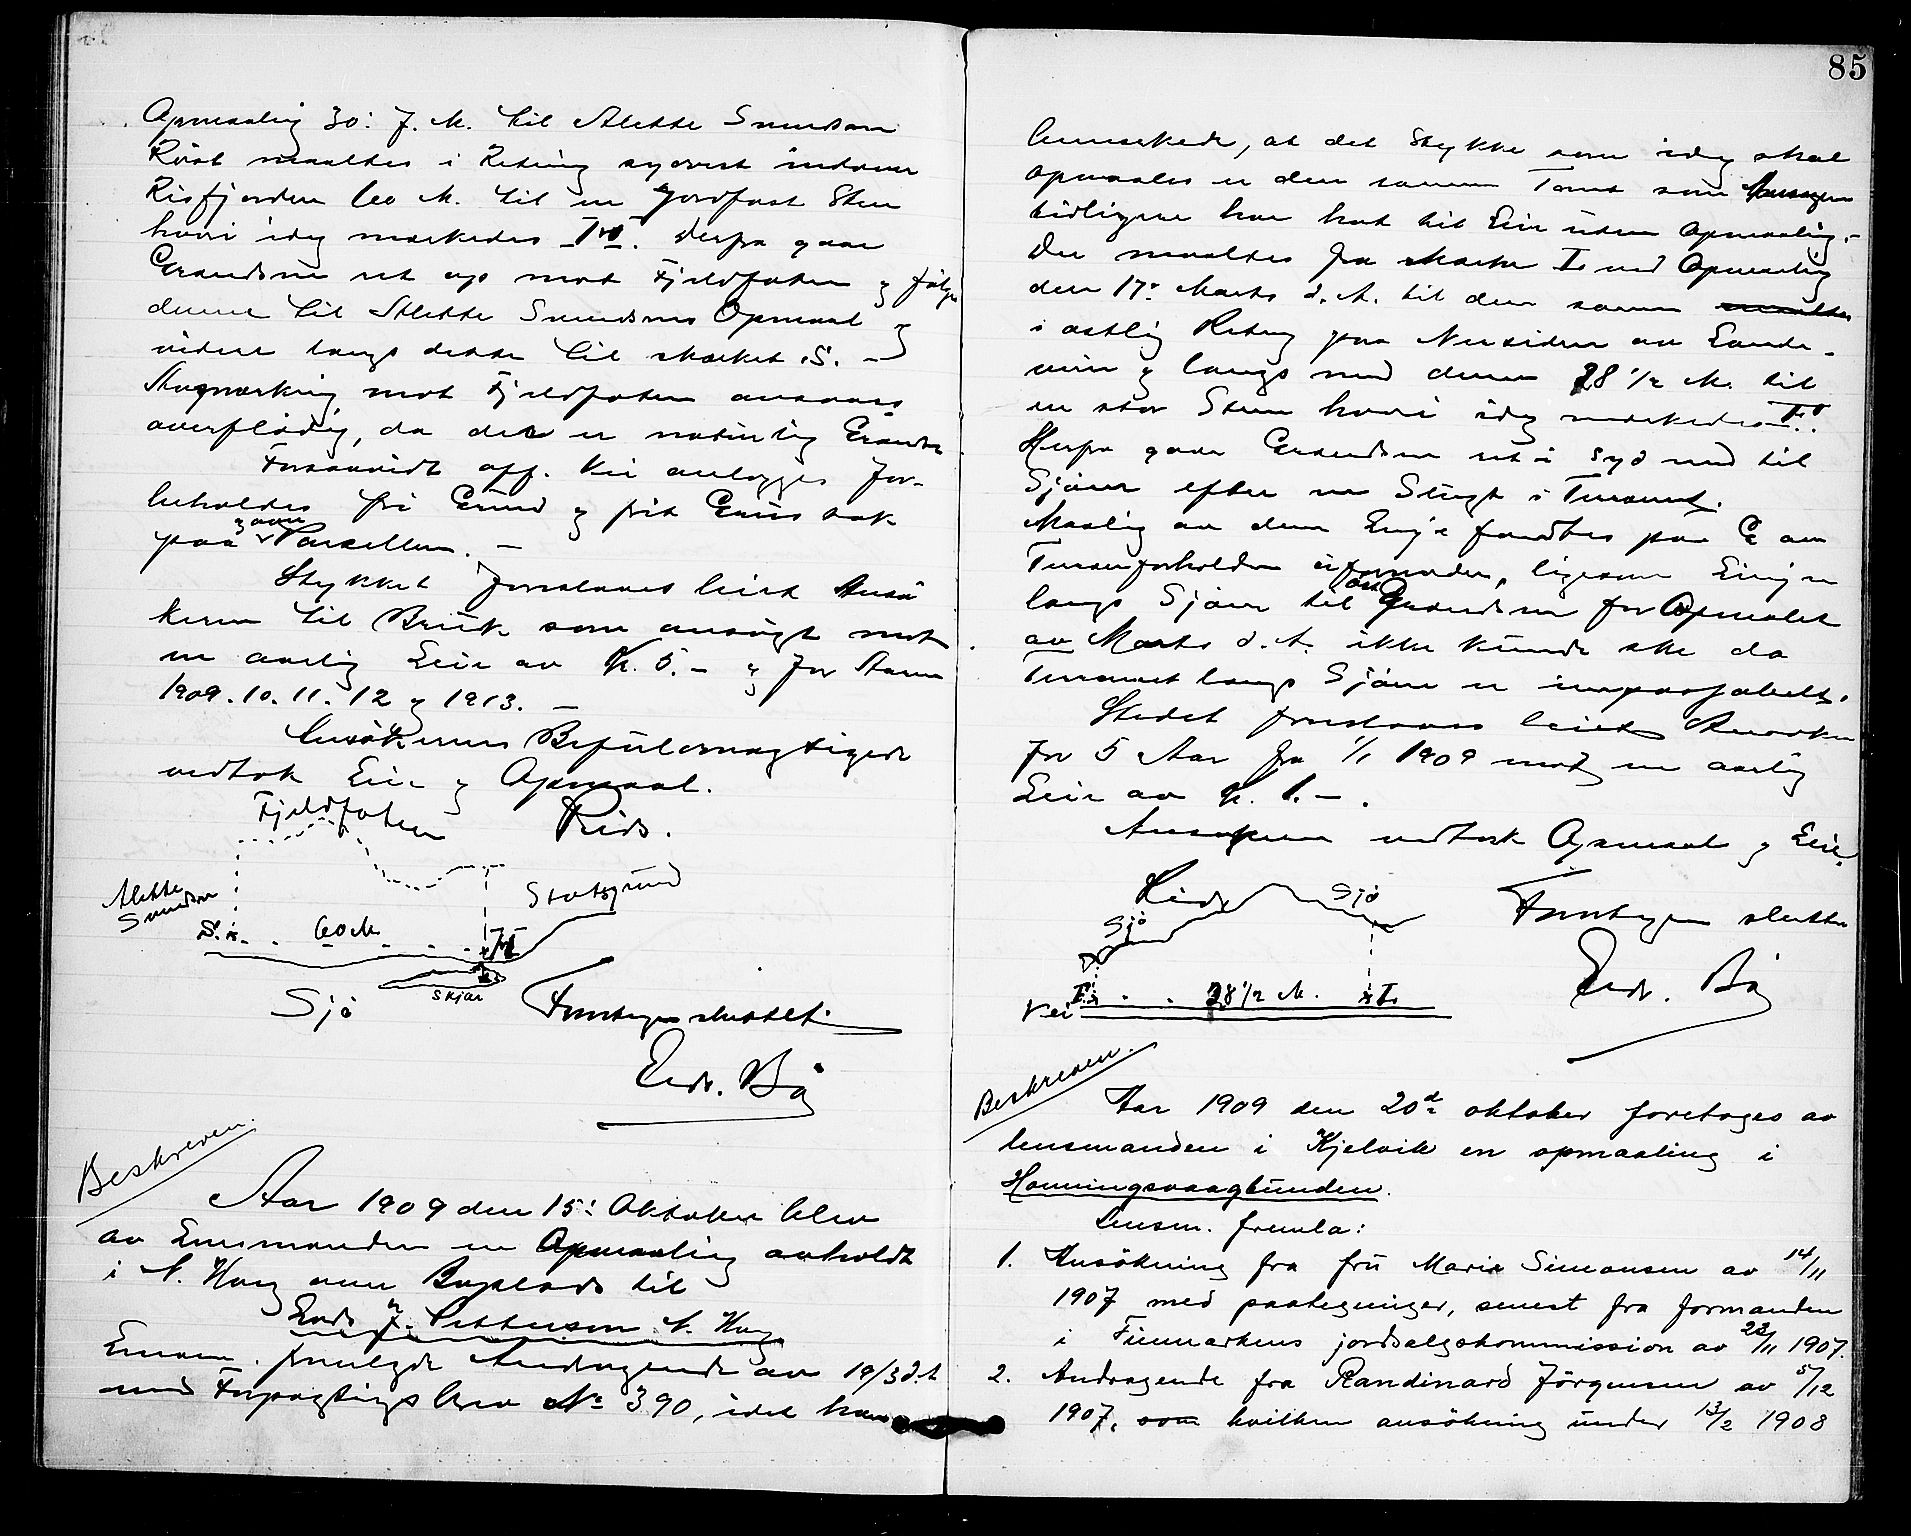 Opmaaling 30: J. M. til Alette Smundsen
Röst maaltes i Retning sydvest indover
Risfjorden 60 M. til en Jordfast Sten
hvori idag merkedes . Derfra gaar
Grændsen ret op mot Fjeldfoten og fölger
denne til Alette Smundsens Opmaal og
videre langs dette til market S. -
Avmerking mot Fjeldfoten ansaaes
overflödig, da det er naturlig Grændse
Forsaavidt off. Vei anlægges for-
beholdes fri Grund og frit Gruus tak
paa og over Parsellen. -
Stykket foreslaaes leiet Ansö
keren til Bruk som ansögt mot
en aarlig Leie av Kr. 5.- og for Aarene
1909. 10. 11. 12 og 1913. -
Ansökerens Befuldmægtigede
vedtok Leie og Opmaal.
Fjeldfoten Rids.
Alette
Smundsen
Statsgrund
S. x. 60 M
Skjær
Sjö
Forretningen sluttet.
Endr. Bö
Beskreven.
Aar 1909 den 15: Oktober blev
av Lensmanden en Opmaaling avholdt
i N. Vaag over Boplads til
J. Pettersen N. Vaag
Lensm. fremlagde Andragende av 19/3 d. A
med Forpagtningsbrev No 390, idet han
85
bemerkede, at det Stykke som idag skal
opmaales er den samme Tomt som Ansögeren
tidligere har hat til Leie uten Opmaaling.-
Der maaltes fra Merke I. ved Opmaaling
den 17: Marts d. A. til den samme
i ostlig Retning paa Nersiden av Lande-
veien og langs med denne 28 1/2 M. til
en stor Sten hvori idag merkedes I.
Herfra gaar Grændsen ret i Syd ned til
Sjöen efter en Stigt i Terrænet.
Maaling av denne Linje fandtes paa G av
Terrænforholdene ufornöden, ligesom Linjen
langs Sjöen til öst Grændsen for Opmalet
av Marts d. A. ikke kunde ske da
Terrænet langs Sjöen er impassabelt.
Stedet foreslaaes leiet Ansökeren
for 5 Aar fra 1/1 1909 mod en aarlig
Leie av Kr. 1.-.
Ansökeren vedtok Opmaal og Leie.
Rids
Sjö
Sjö
Forretningen sluttet
Vei I. x 28 1/2 M. x I.
Endr. Bö
Beskreven.
Aar 1909 den 20de oktober foretoges av
lensmanden i Kjelvik en opmaaling i
Honningsvaagbunden.
Lensm. fremla:
1. Ansökning fra fru Marie Simonsen av 14/11
1907 med paategninger, senest fra formanden
i Finmarkens jordsalgskommission av 22/11 1907.
2. Andragende fra Randinard Jörgensen av 5/12
1907. som hvilken ansökning under 13/2 1908